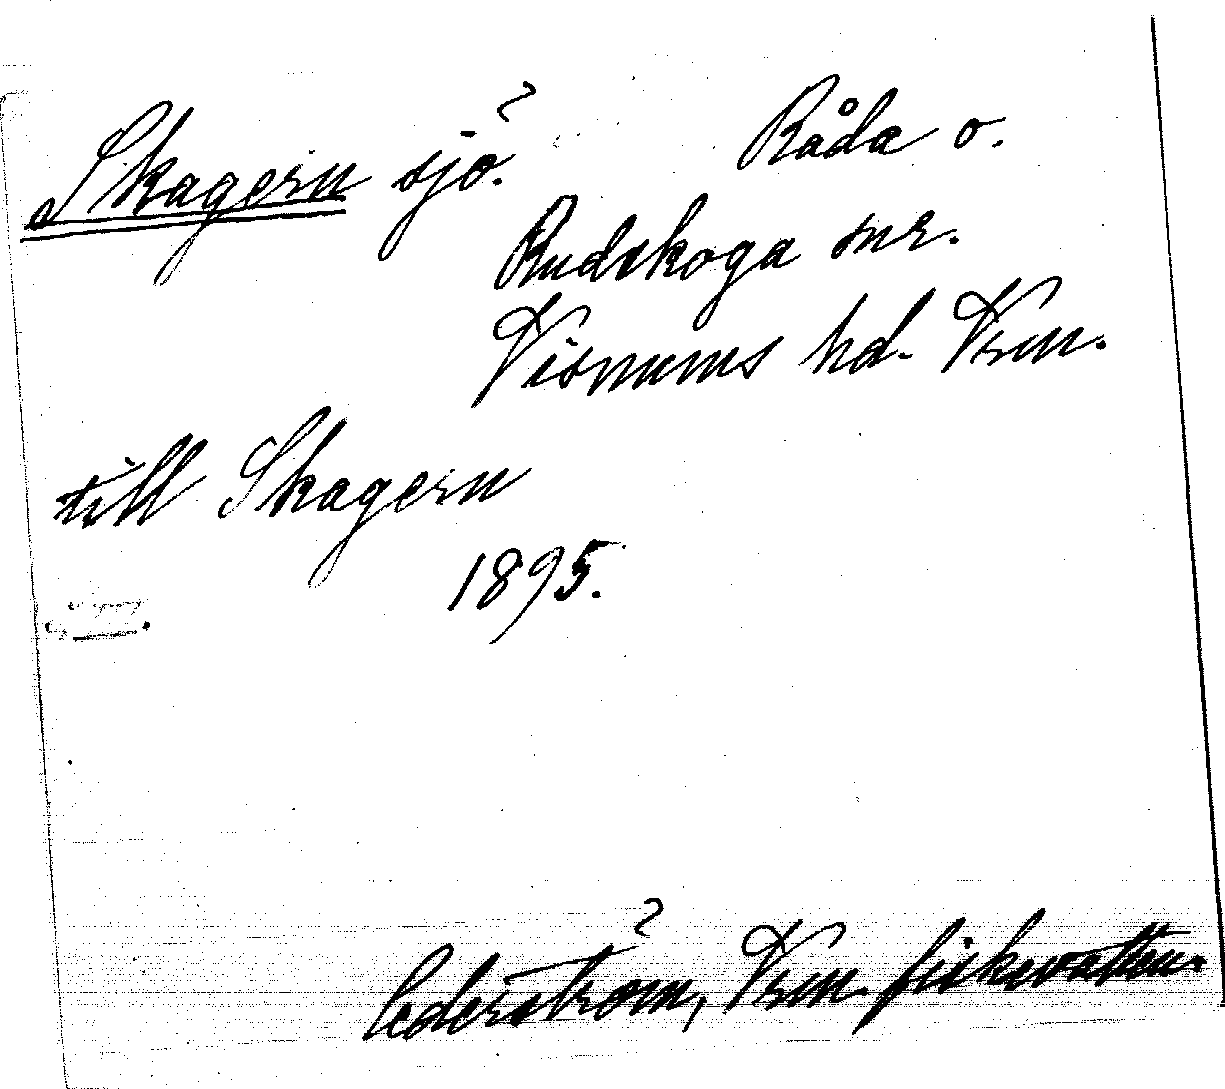 Skagern sjö. Råda o.
Rudskoga snr.
Visnums hd. Vrm.
till Skagern
1895.
Cederström, Vrm. fiskevatten.